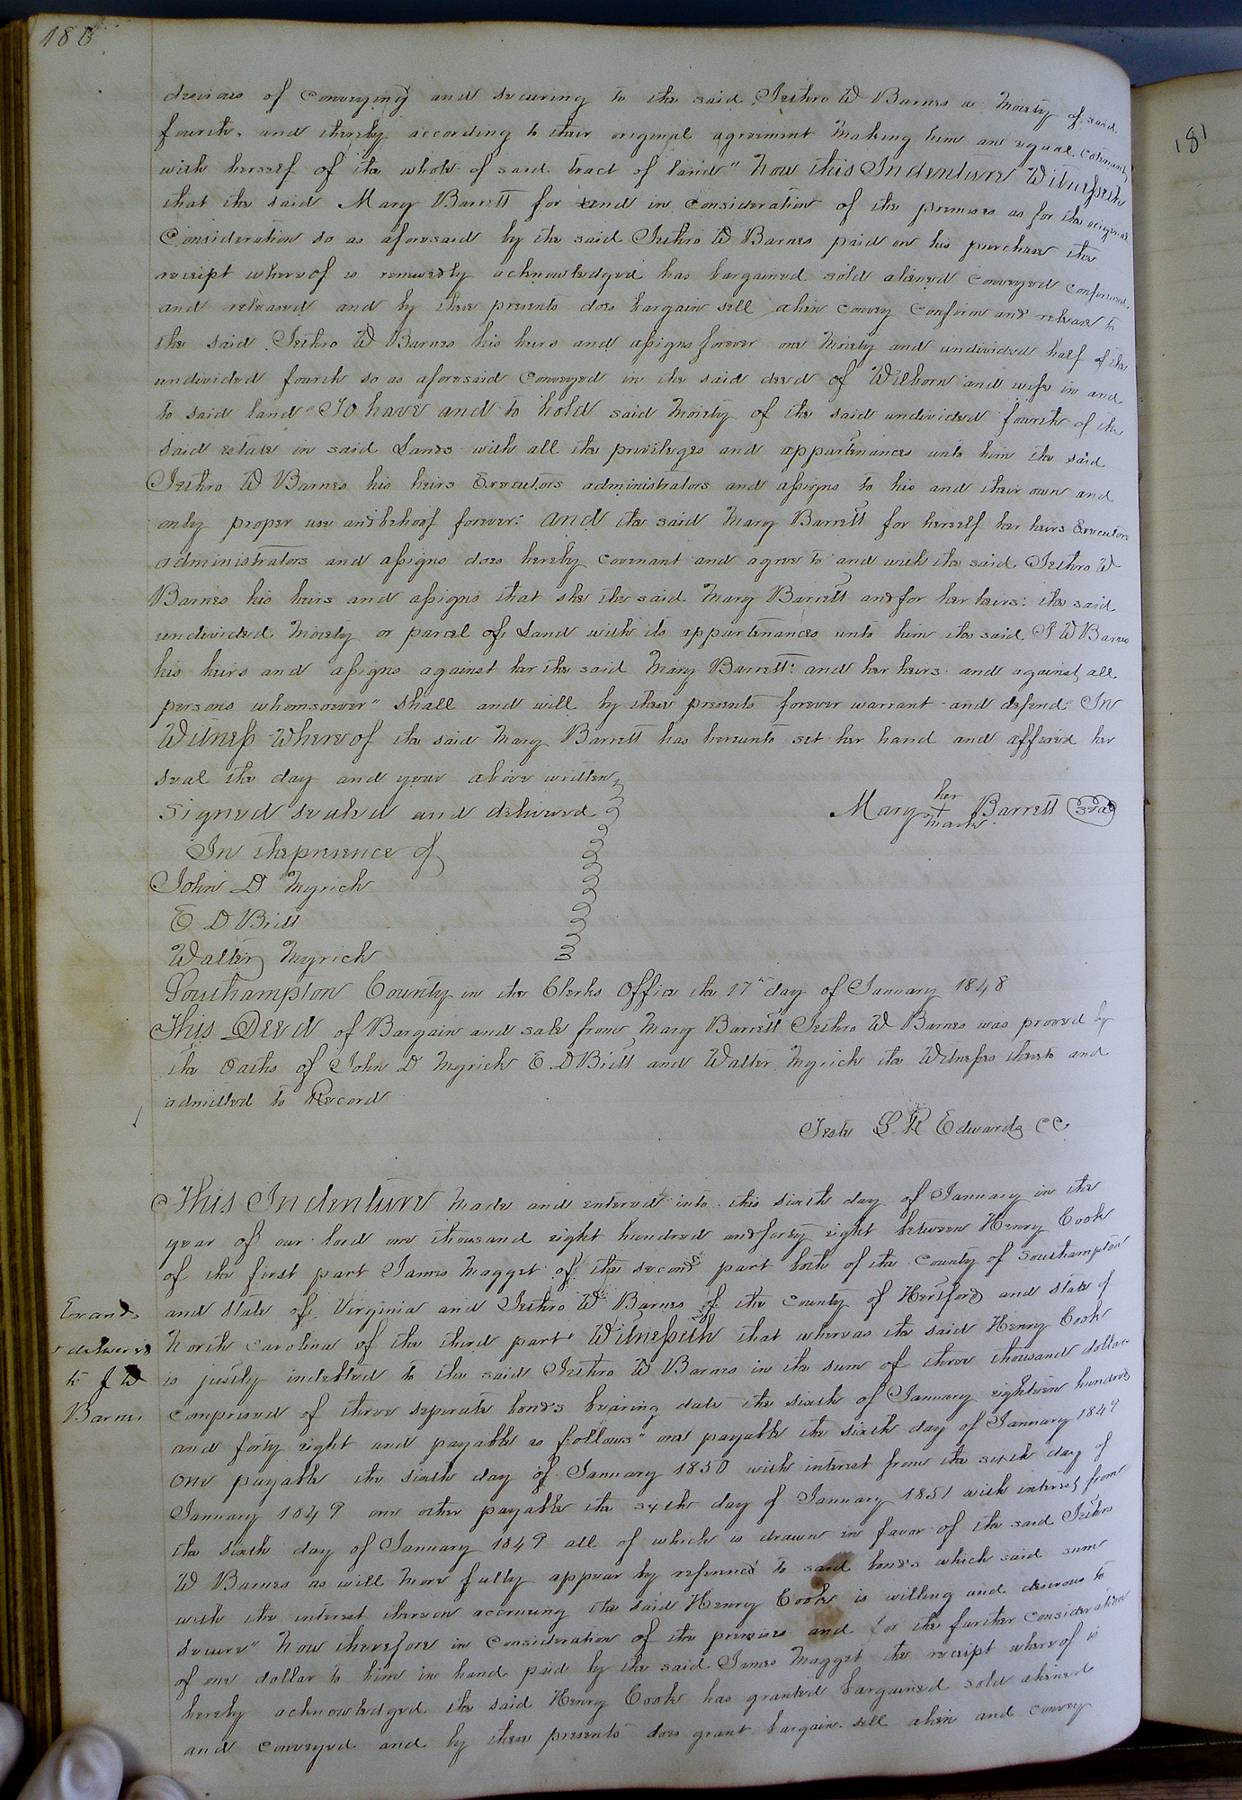 180
181
desirous of conveying and securing to the said Jethro W Barnes a moiety of said
fourth, and thereby according to their original agreement making him an equal cotenant
with herself of the whole of said tract of land" Now this Indenture Witnesseth
that the said Mary Barrett for and in consideration of the premises as for the original
Consideration so as aforesaid by the said Jethro W Barnes paid on his purchase the
receipt whereof is renewedly acknowledged has bargained sold aliened conveyed confirmed
and released and by these presents does bargain sell alien convey confirm and release to
the said Jethro W Barnes his heirs and assigns forever one moiety and undivided half of the
undivided fourth so as aforesaid conveyed in the said deed of Wilborn and wife in and
to said land" To have and to hold said moiety of the said undivided fourth of the
said estate in said Lands with all the privileges and appurtenances unto him the said
Jethro W Barnes his heirs Executors administrators and assigns to his and their own and
only proper use and behoof forever: and the said Mary Barrett for herself her heirs Executors
administrators and assigns does hereby covenant and agree to and with the said Jethro W
Barnes his heirs and assigns that she the said Mary Barrett and for her heirs: the said
undivided moiety or parcel of Land with its appurtenances unto him the said J W Barnes
his heirs and assigns against her the said Mary Barrett: and her heirs and against all
persons whomsoever" shall and will by these presents forever warrant and defend In
Witness Whereof the said Mary Barrett has hereunto set her hand and affixed her
seal the day and year above written
Signed sealed and delivered
Mary her + mark Barrett seal
In the presence of
John D Myrick
E D Britt
Walter Myrick
Southampton County in the Clerks Office the 17th day of January 1848
This Deed of Bargain and sale from Mary Barrett Jethro W Barnes was proved by
the Oaths of John D Myrick E D Britt and Walter Myrick the Witnesses thereto and
admitted to Record
Teste L R Edwards CC
This Indenture Made and entered into this sixth day of January in the
year of our lord one thousand eight hundred and forty eight between Henry Cook
of the first part James Magget of the second part both of the County of Southampton
and State of Virginia and Jethro W Barnes of the County of Hertford and State of
North Carolina of the third part Witnesseth that whereas the said Henry Cook
is justly indebted to the said Jethro W Barnes in the sum of three thousand dollars
comprised of three seperate bonds bearing date the sixth of January eighteen hundred
and forty eight and payable as follows" one payable the sixth day of January 1849
one payable the sixth day of January 1850 with interest from the sixth day of
January 1849 one other payable the sixth day of January 1851 with interest from
the sixth day of January 1849 all of which is drawn in favor of the said Jethro
W Barnes as will more fully appear by referenc to said bonds which said sum
with the interest thereon accruing the said Henry Cook is willing and desirous to
secure" Now therefore in consideration of the premises and for the further consideration
of one dollar to him in hand paid by the said James Magget the receipt whereof is
hereby acknowledged the said Henry Cook has granted bargained sold aliened
and conveyed and by these presents does grant bargain sell alien and convey
Exand
& delivered
to J W
Barnes